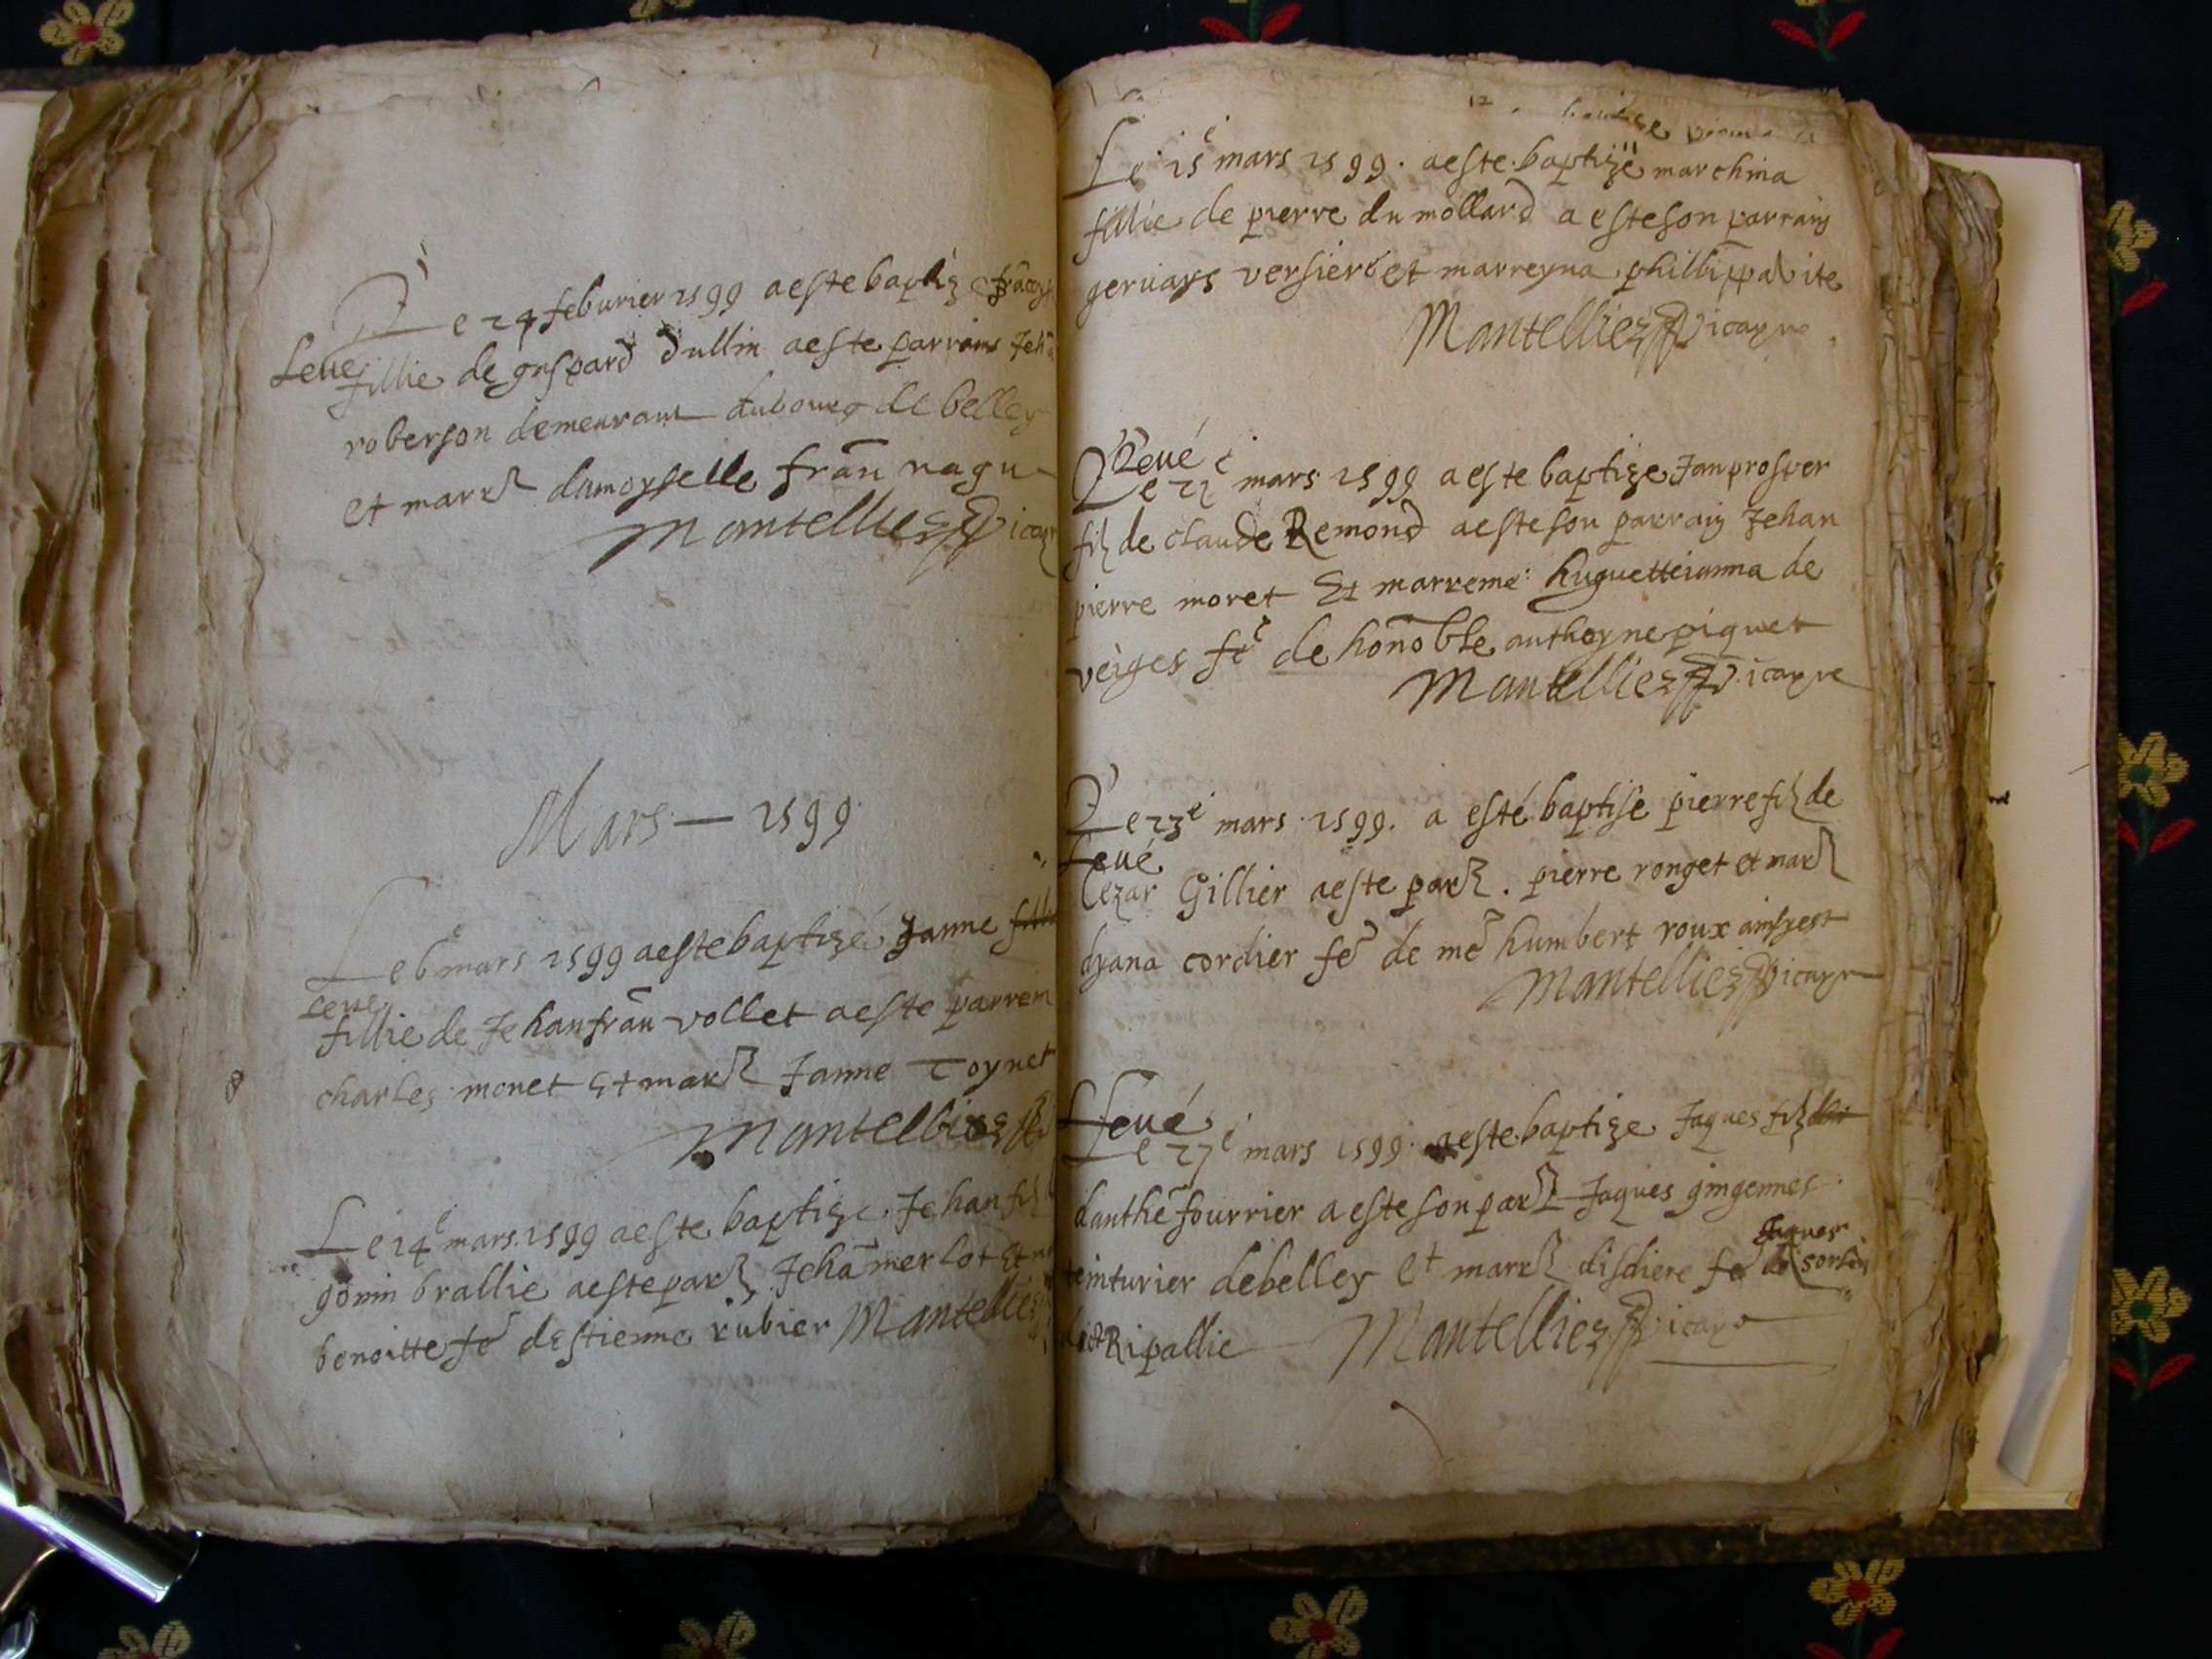 Le 24 feburier 1599 a este baptiz
Leue
fillie de gaspard dullin a este parrains Jehã
roberson demeurant au bourg de belley
et marr damoyselle frãn vagu
Mantellier Vicayr
Mars — 1599
Le 6e mars 1599 a este baptizé Janne
Leue
fillie de Jehan frãn vollet a este parrein
charles monet Et marr Janne Toynet
Mantellier
Le 14e mars 1599 a este baptize Jehan filz
gonin brallie a este parr Jehã merlot Et
benoitte fẽ destienne rubier Mantellier
12
Le 15e mars 1599. a este baptizë marchina
fillie de pierre du mollard a este son parrain
geruays versier et marreyna phillippa vite
Mantellier Vicayre
Leué
Le 22e mars 1599 a este baptize Jan prosper
filz de claude Remond a este son parrain Jehan
pierre moret Et marreine: huguette ianna de
veiges fẽ de honoble anthoyne piquet
Mantellier Vicayre
Le 23e mars 1599. a esté baptisé pierre filz de
Leué
Cezar Gillier a este parr. pierre ronget et marr
dyana cordier fẽ de mẽ humbert roux ainsy est
Mantellier Vicayre
Leué
Le 27e mars 1599 a este baptize Jaques filz
danthẽ fourrier a este son parr Jaques gingennes
Jaques
teinturier de belley et marr disdiere fẽ de sorlin
dict Ripallie Mantellier Vicayre